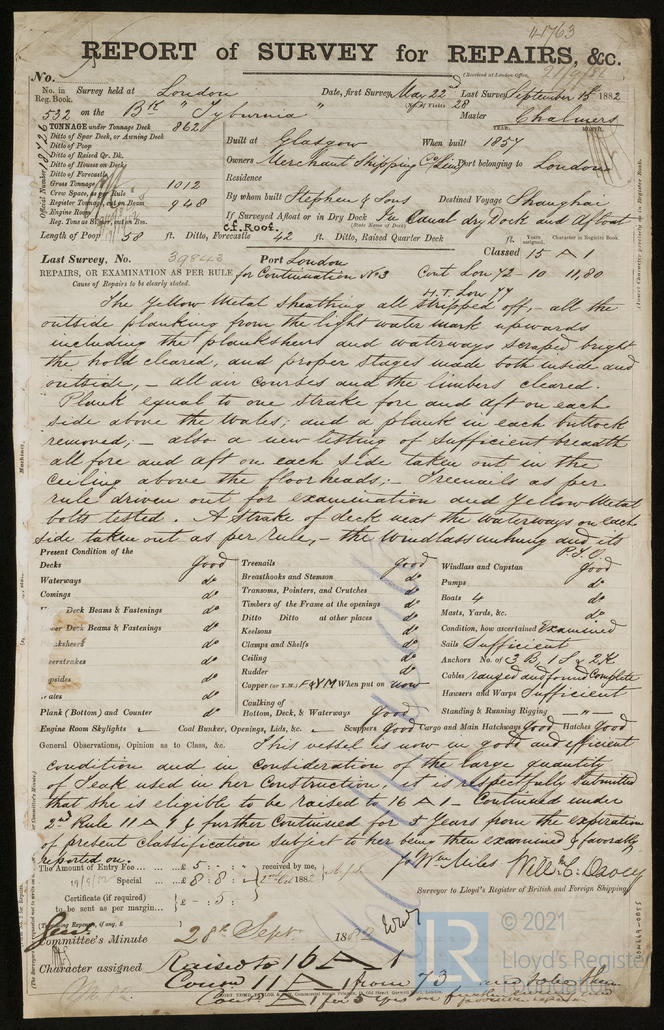 41763
REPORT of SURVEY for REPAIRS, &c.
(Received at London Office,
No.
No. in Reg. Book.
Survey held at London Date, first Survey May 22nd Last Survey September 15th 1882
(No. of Visits 28
532 on the Bk "Tyburnia" Master Chalmers
TONNAGE under Tonnage Deck 862
Ditto of Spar Deck, or Awning Deck
Ditto of Poop
Ditto of Raised Qr. Dk.
Ditto of Houses on Deck
Ditto of Forecastle
Gross Tonnage 1012
Crew Space, as per Rule
Register Tonnage, cut on Beam 948
Engine Room
Reg. Tons as Steamer, cut on Bm.
Official Number
YEAR. MONTH.
Built at Glasgow When built 1857
Owners Merchant Shipping Co Limd Port belonging to London
Residence
By whom built Stephen & Sons Destined Voyage Shanghai
If Surveyed Afloat or in Dry Dock In Canal dry Dock and Afloat
(State Name of Dock)
Length of Poop 58 ft. Ditto, Forecastle C.f. Roof. 42 ft. Ditto, Raised Quarter Deck ft.
Years assigned. Character in Register Book.
Last Survey, No. 39843 Port London Classed 15 A 1
REPAIRS, OR EXAMINATION AS PER RULE for Continuation No 3 Cont Lon 72-10 11,80
Cause of Repairs to be clearly stated. H.T. Lon 77
The Yellow Metal sheathing all stripped off, - all the
outside planking from the light water mark upwards
including the planksheers and waterways scraped bright
the hold cleared, and proper stages made both inside and
outside, - all air courses and the limbers cleared.
Plank equal to one strake fore and aft on each
side above the Wales; and a plank in each buttock
removed; - also a new listing of sufficient breadth
all fore and aft on each side taken out in the
ceiling above the floorheads; - Treenails as per
rule driven out for examination and Yellow Metal
bolts tested. A strake of deck next the waterways on each
side taken out as per rule, - the windlass unhung and its
P.T.O.
Present Condition of the
Decks Good
Waterways do
Comings do
Deck Beams & Fastenings do
Deck Beams & Fastenings do
ksheers do
eerstrakes do
psides do
ales do
Plank (Bottom) and Counter do
Treenails good
Breasthooks and Stemson do
Transoms, Pointers, and Crutches do
Timbers of the Frame at the openings do
Ditto Ditto at other places do
Keelsons do
Clamps and Shelfs do
Ceiling do
Rudder do
Copper (or Y.M.) F&YM When put on now
Caulking of
Bottom, Deck, & Waterways Good
Windlass and Capstan good
Pumps do
Boats 4 do
Masts, Yards, &c. do
Condition, how ascertained Examined
Sails Sufficient
Anchors No. of 3 B, 1 S & 2 K
Cables ranged and found Complete
Hawsers and Warps Sufficient
Standing & Running Rigging - " -
Engine Room Skylights Coal Bunker, Openings, Lids, &c. Scuppers Good Cargo and Main Hatchways Good Hatches Good
General Observations, Opinion as to Class, &c. This vessel is now in good and efficient
condition and in consideration of the large quantity
of Teak used in her Construction, it is respectfully submitted
that she is eligible to be raised to 16 A 1 - Continued under
2nd Rule 11 A 1 & further Continued for 5 Years from the expiration
of present classification subject to her being then examined & favorably
reported on.
The Amount of Entry Fee ... £ 5 : - : - received by me,
Special ... £ 8 : 8 : - 1882
Certificate (if required) £ - 5 : -
to be sent as per margin...
(Travelling Expenses, if any, £ )
for Wm Miles Will. C. Davey
Surveyor to Lloyd's Register of British and Foreign Shipping
Committee's Minute 28th Sept. 1882
Character assigned Raised to 16 A 1
Contd 11 A 1 from 73
LR
© 2021
Lloyd's Register
Foundation